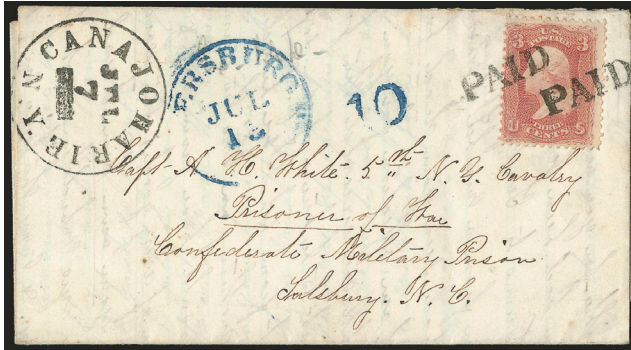 CANAJOHARIE N.Y
JUL
7
ERSBURG
JUL
10
PAID
PAID
3 3
U.S.
POSTAGE
U THREE CENTS S
Capt A H. White 5"th N. Y. Cavalry
Prisoner of War
Confederate Military Prison
Salsbury. N. C.